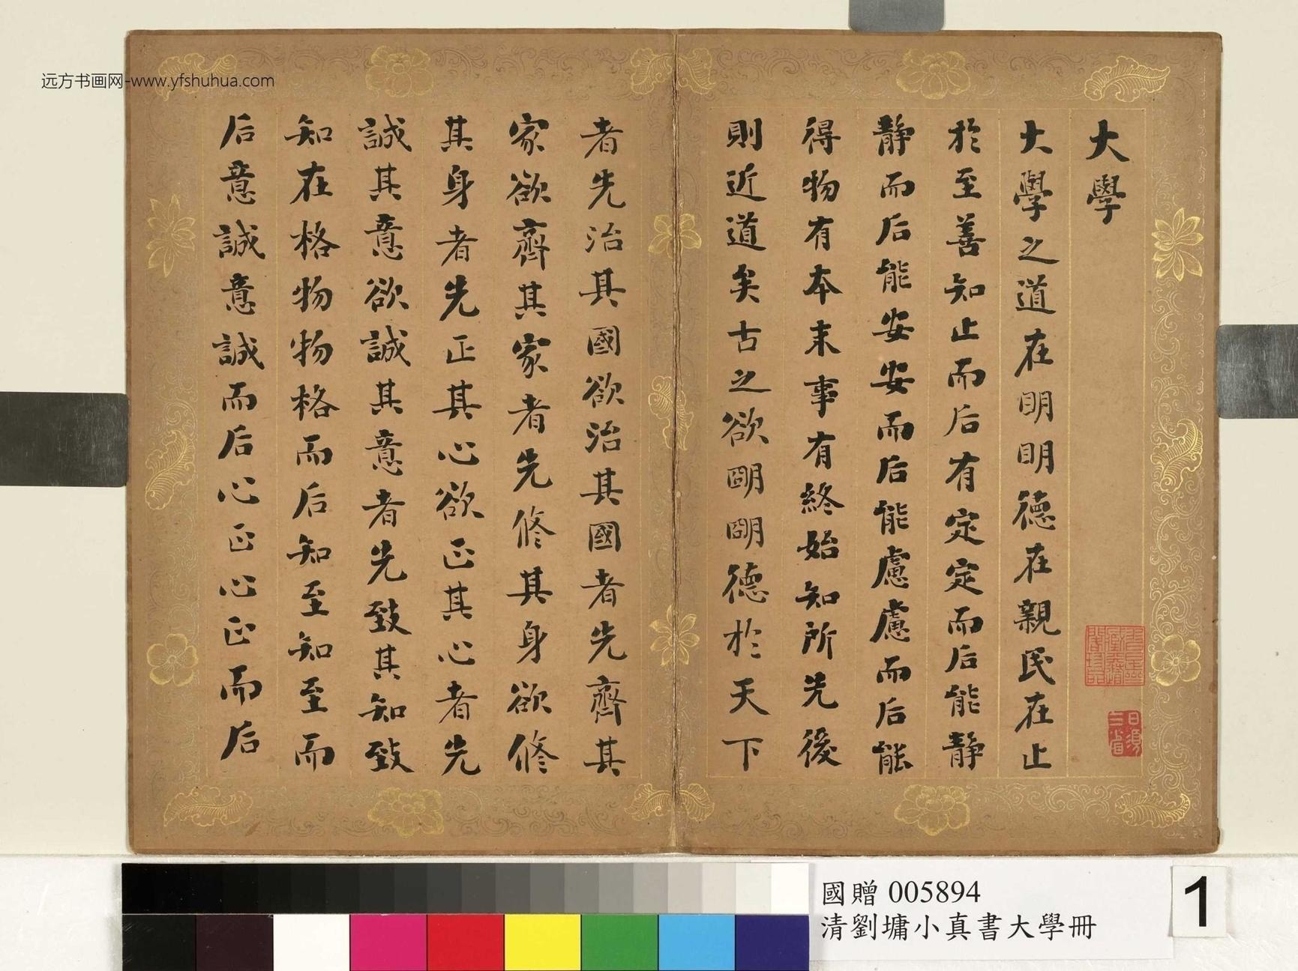 远方书画网-www.yfshuhua.com
大學
大學之道在明明德在親民在止
於至善知止而后有定定而后能靜
靜而后能安安而后能慮慮而后能
得物有本末事有終始知所先後
則近道矣古之欲明明德於天下
者先治其國欲治其國者先齊其
家欲齊其家者先修其身欲修
其身者先正其心欲正其心者先
誠其意欲誠其意者先致其知致
知在格物物格而后知至知至而
后意誠意誠而后心正心正而后
日須三省
國贈 005894
清劉墉小真書大學冊
1